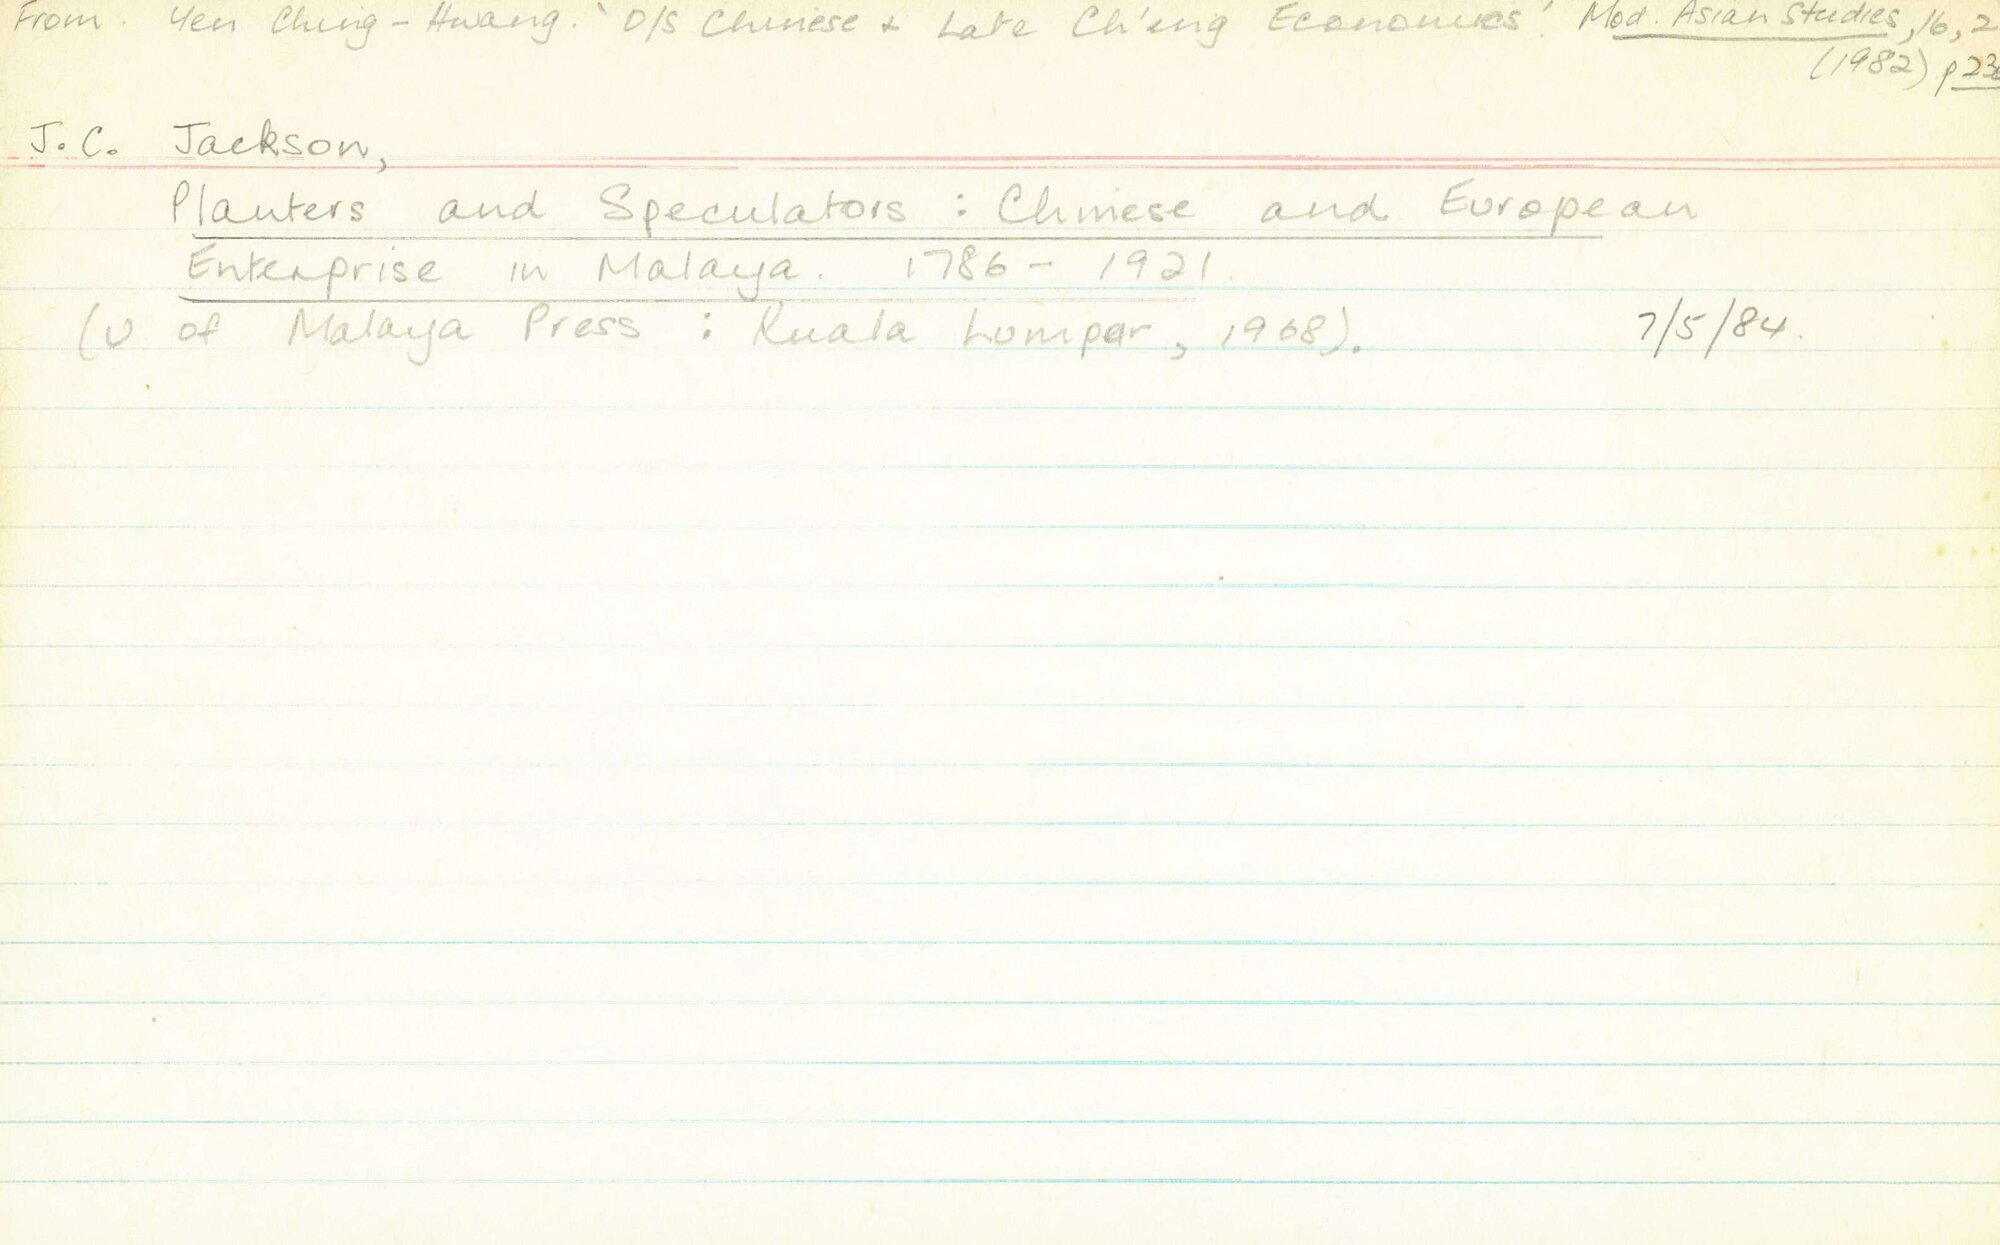 From. Yen Ching-Hwang. 'O/S Chinese & Late Ch'eng Economics'. Mod. Asian Studies, 16, 2
(1982) p
J.C. Jackson,
Planters and Speculators : Chinese and European
Enterprise in Malaya. 1786 - 1921.
(U of Malaya Press : Kuala Lumpar, 1968). 7/5/84.